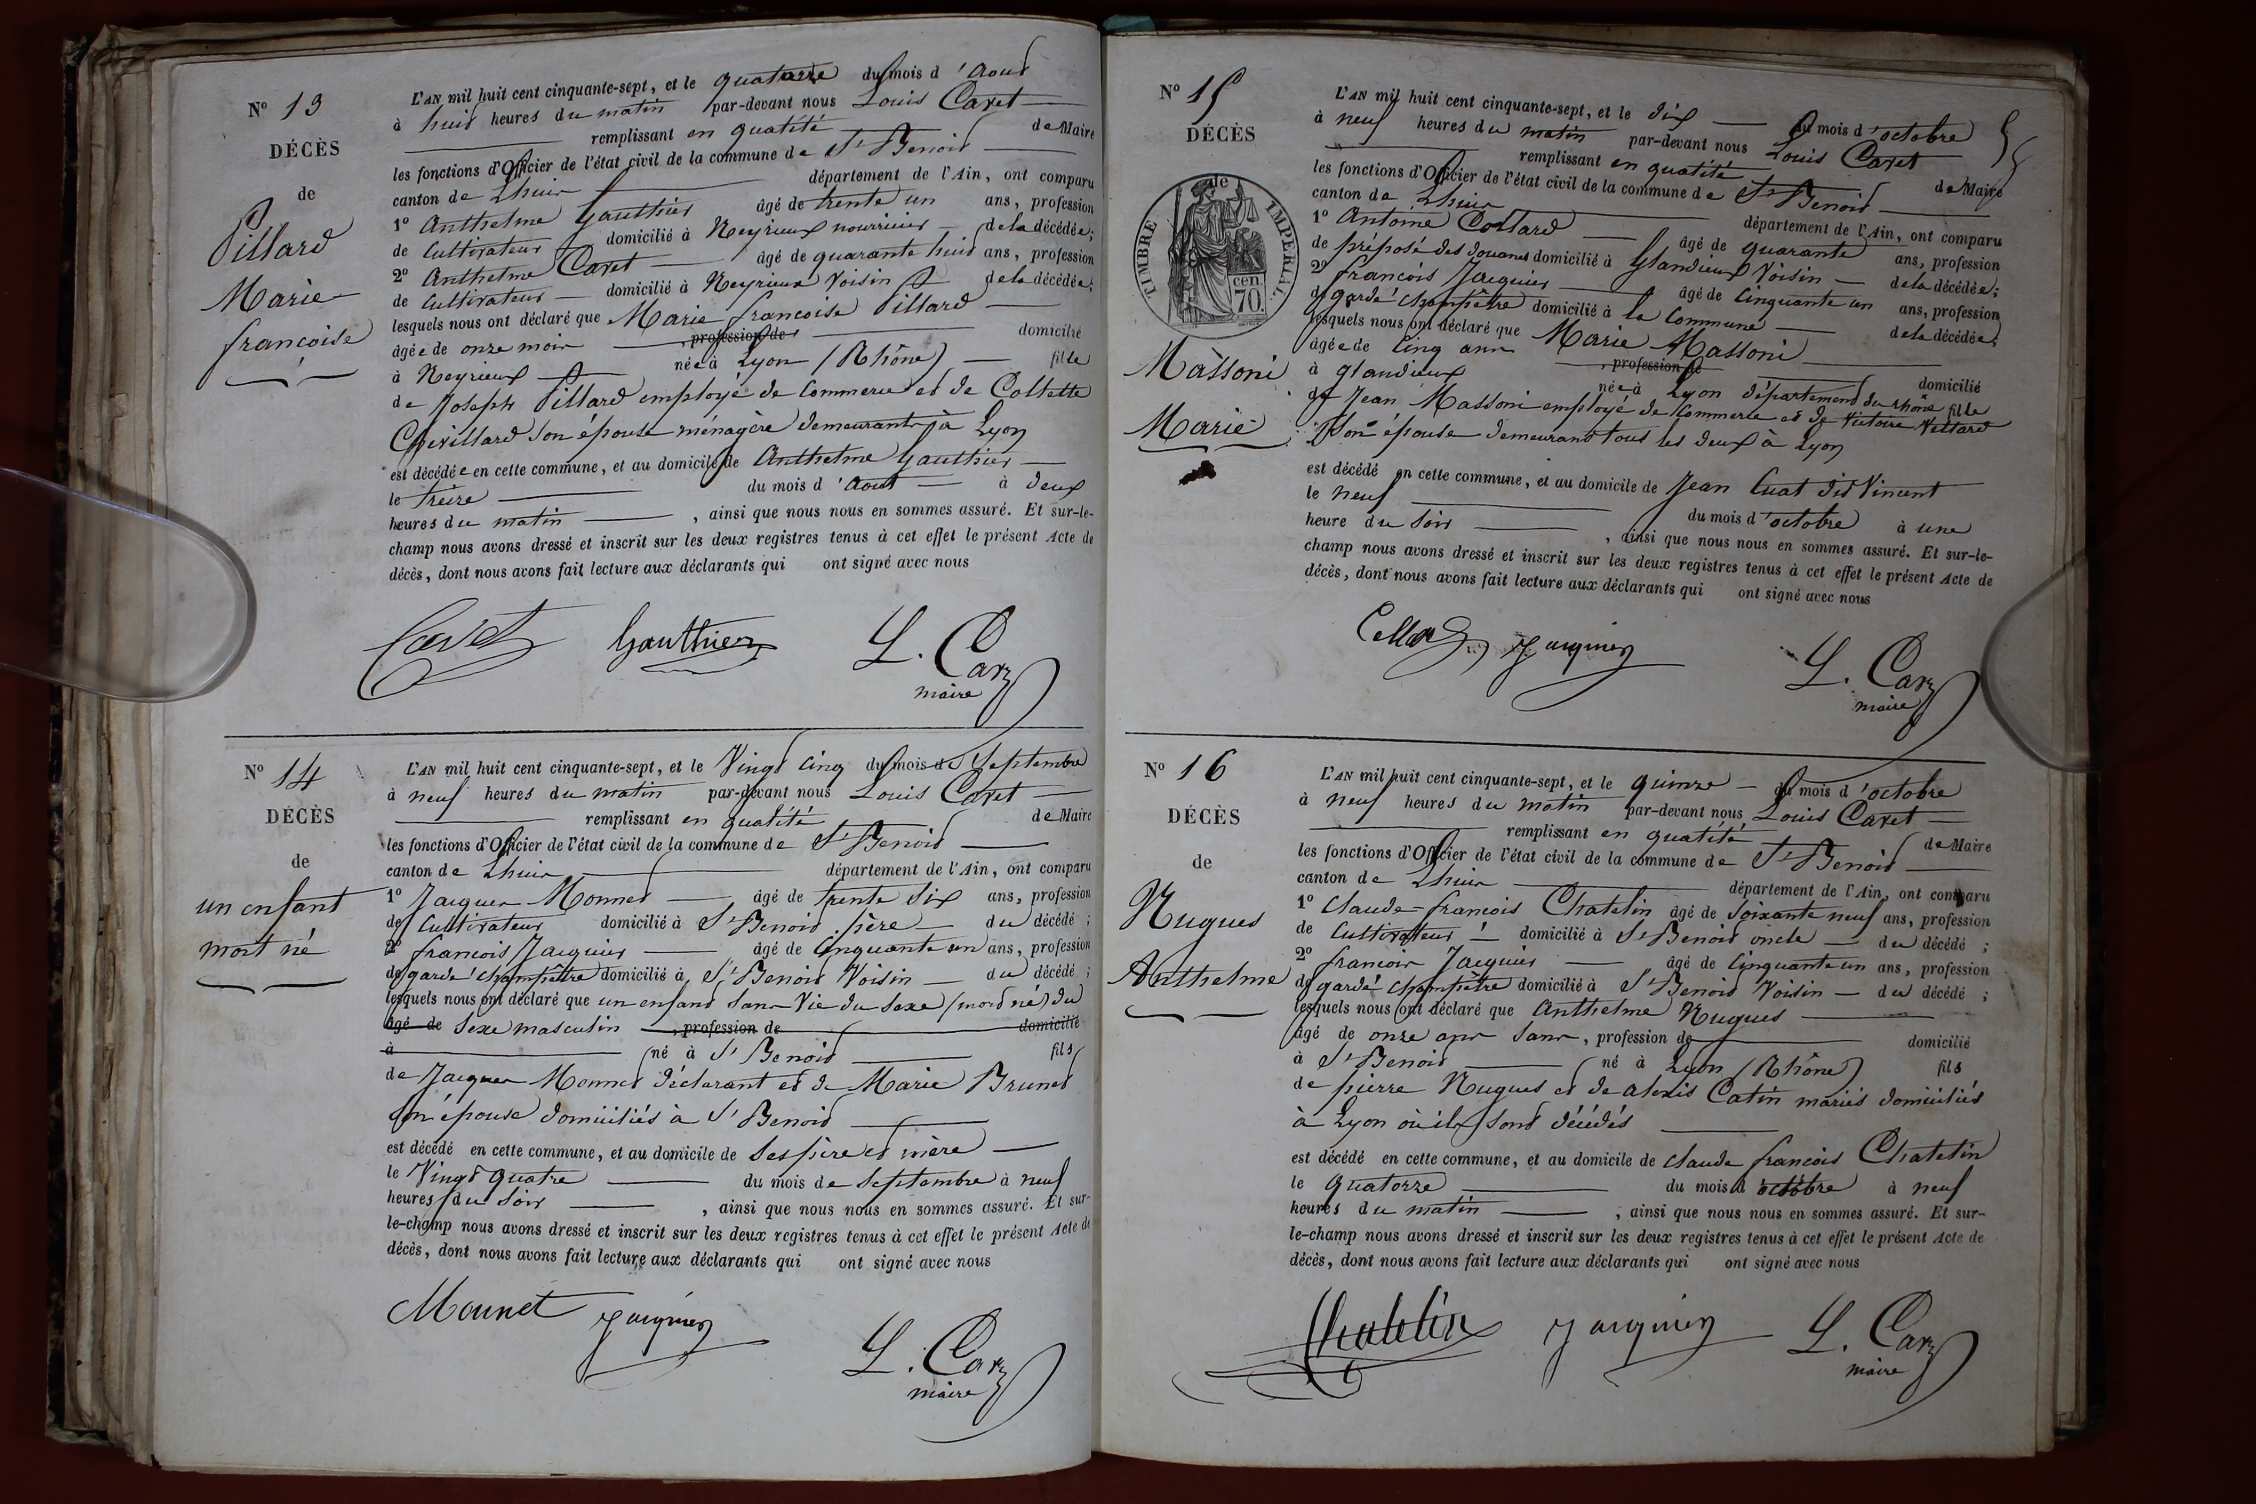 N° 13
DÉCÈS
de
Pillard
Marie
françoise
L'AN mil huit cent cinquante-sept, et le quatorze du mois d'Aout
à huit heures du matin par-devant nous Louis Cavet
remplissant en qualité de Maire
les fonctions d'Officier de l'état civil de la commune de St Benoit
canton de Lhuis département de l'Ain, ont comparu
1° Anthelme Gauthier âgé de trente un ans, profession
de Cultivateur domicilié à Neyrieux nourricier de la décédée;
2° Anthelme Cavet âgé de quarante huit ans, profession
de Cultivateur domicilié à Neyrieux Voisin de la décédée;
lesquels nous ont déclaré que Marie françoise Pillard
âgée de onze mois , profession de domicilié
à Neyrieux née à Lyon (Rhône) fille
de Joseph Pillard employé de Commerce et de Collette
Chevillard son épouse ménagère demeurants à Lyon
est décédée en cette commune, et au domicile de Anthelme Gauthier
le treize du mois d'Aout à deux
heures du matin , ainsi que nous nous en sommes assuré. Et sur-le-
champ nous avons dressé et inscrit sur les deux registres tenus à cet effet le présent Acte de
décès, dont nous avons fait lecture aux déclarants qui ont signé avec nous
Cavet Gauthier L. Cavet
maire
N° 14
DÉCÈS
de
un enfant
mort né
L'AN mil huit cent cinquante-sept, et le Vingt cinq du mois de Septembre
à neuf heures du matin par-devant nous Louis Cavet
remplissant en qualité de Maire
les fonctions d'Officier de l'état civil de la commune de St Benoit
canton de Lhuis département de l'Ain, ont comparu
1° Jacques Monnet âgé de trente Six ans, profession
de Cultivateur domicilié à St Benoit père du décédé ;
2° francois Jacquier âgé de Cinquante un ans, profession
de garde Champêtre domicilié à St Benoit Voisin du décédé ;
lesquels nous ont déclaré que un enfant sans Vie du Sexe (mort né) du
âgé de Sexe masculin , profession de domicilié
à né à St Benoit fils
de Jacques Monnet déclarant et de Marie Brunet
son épouse domiciliés à St Benoit
est décédé en cette commune, et au domicile de Ses père et mère
le Vingt quatre du mois de Septembre à neuf
heures du Soir , ainsi que nous nous en sommes assuré. Et sur-
le-champ nous avons dressé et inscrit sur les deux registres tenus à cet effet le présent Acte de
décès, dont nous avons fait lecture aux déclarants qui ont signé avec nous
Mounet Jacquier L. Cavet
maire
55
N° 15
DÉCÈS
de
TIMBRE IMPÉRIAL
70 cen.
Massoni
Marie
L'AN mil huit cent cinquante-sept, et le dix du mois d'octobre
à neuf heures du matin par-devant nous Louis Cavet
remplissant en qualité de Maire
les fonctions d'Officier de l'état civil de la commune de St Benoit
canton de Lhuis département de l'Ain, ont comparu
1° Antoine Collard âgé de quarante ans, profession
de préposé des douanes domicilié à Glandieux Voisin de la décédée;
2° francois Jacquier âgé de Cinquante un ans, profession
de garde Champêtre domicilié à la Commune de la décédée;
lesquels nous ont déclaré que Marie Massoni
âgée de Cinq ans , profession de domicilié
à glandieux née à Lyon département du rhône fille
de Jean Massoni employé de Commerce et de Victoire Villard
son épouse demeurant tous les deux à Lyon
est décédé en cette commune, et au domicile de Jean Cuat dit Vincent
le neuf du mois d'octobre à une
heure du Soir , ainsi que nous nous en sommes assuré. Et sur-le-
champ nous avons dressé et inscrit sur les deux registres tenus à cet effet le présent Acte de
décès, dont nous avons fait lecture aux déclarants qui ont signé avec nous
Collard Jacquier L. Cavet
maire
N° 16
DÉCÈS
de
Nugues
Anthelme
L'AN mil huit cent cinquante-sept, et le quinze du mois d'octobre
à neuf heures du matin par-devant nous Louis Cavet
remplissant en qualité de Maire
les fonctions d'Officier de l'état civil de la commune de St Benoit
canton de Lhuis département de l'Ain, ont comparu
1° Claude-francois Chatelin âgé de Soixante neuf ans, profession
de Cultivateur domicilié à St Benoit oncle du décédé ;
2° francois Jacquier âgé de Cinquante un ans, profession
de garde Champêtre domicilié à St Benoit Voisin du décédé ;
lesquels nous ont déclaré que Anthelme Nugues
âgé de onze ans Sans , profession de domicilié
à St Benoit né à Lyon (Rhône) fils
de pierre Nugues et de alexis Catin mariés domiciliés
à Lyon où ils sont décédés
est décédé en cette commune, et au domicile de Claude francois Chatelin
le quatorze du mois d'octobre à neuf
heures du matin , ainsi que nous nous en sommes assuré. Et sur-
le-champ nous avons dressé et inscrit sur les deux registres tenus à cet effet le présent Acte de
décès, dont nous avons fait lecture aux déclarants qui ont signé avec nous
Chatelin Jacquier L. Cavet
maire